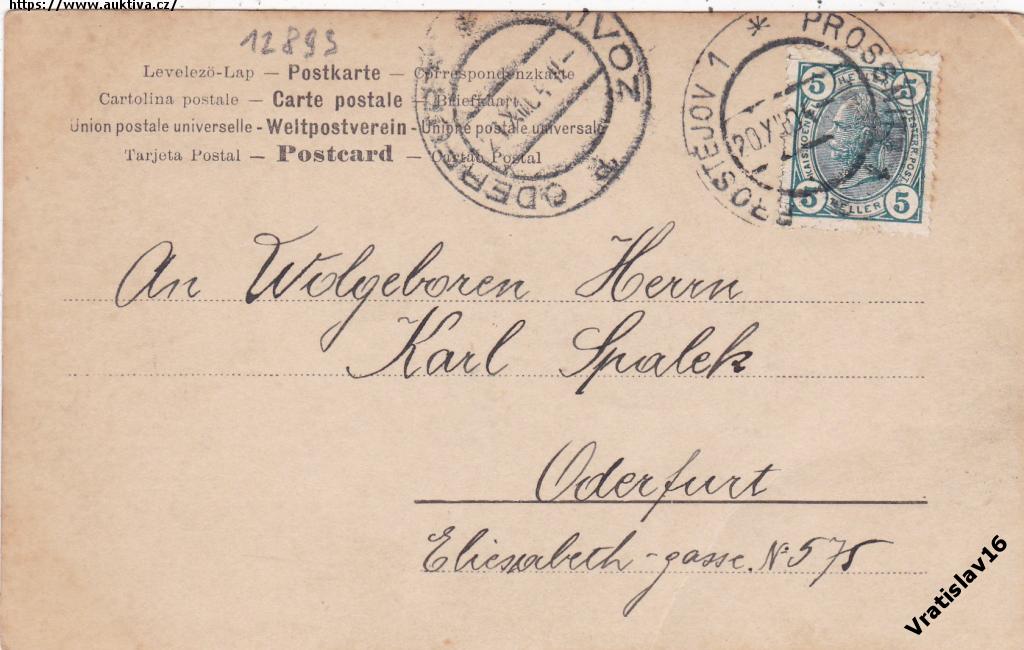 https://www.auktiva.cz/
12893
Levelező-Lap — Postkarte — Correspondenzkarte
Cartolina postale — Carte postale — Briefkaart
Union postale universelle - Weltpostverein - Unione postale universale
Tarjeta Postal — Postcard — Cartão Postal
PŘÍVOZ
* ODERFURT *
PROSTĚJOV 1 * PROSSNITZ
20.XII.
5 HELLER 5
5 HELLER 5
An Wolgeboren Herrn
Karl Spalek
Oderfurt
Eliesabeth-gasse. No 575
Vratislav16